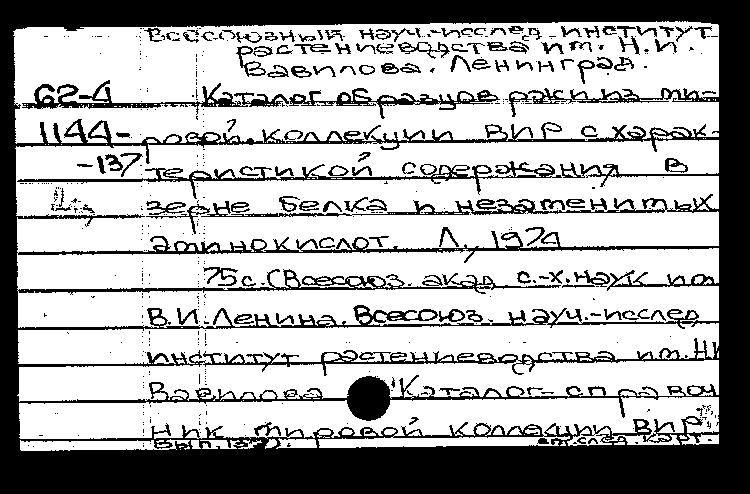 Всесоюзный науч.-исслед. институт
растениеводства им. Н.И.
Вавилова. Ленинград.
62-4 Каталог образцов ржи из ми-
1144- ровой коллекции ВИР с харак-
-137 теристикой содержания в
зерне белка и незаменимых
аминокислот. Л., 1974
75с. (Всесоюз. акад. с.-х. наук им.
В.И. Ленина. Всесоюз. науч.-исслед.
институт растениеводства им. Н.И
Вавилова "Каталог-справоч
ник мировой коллекции ВИР"
вып. 137). см. след. карт.